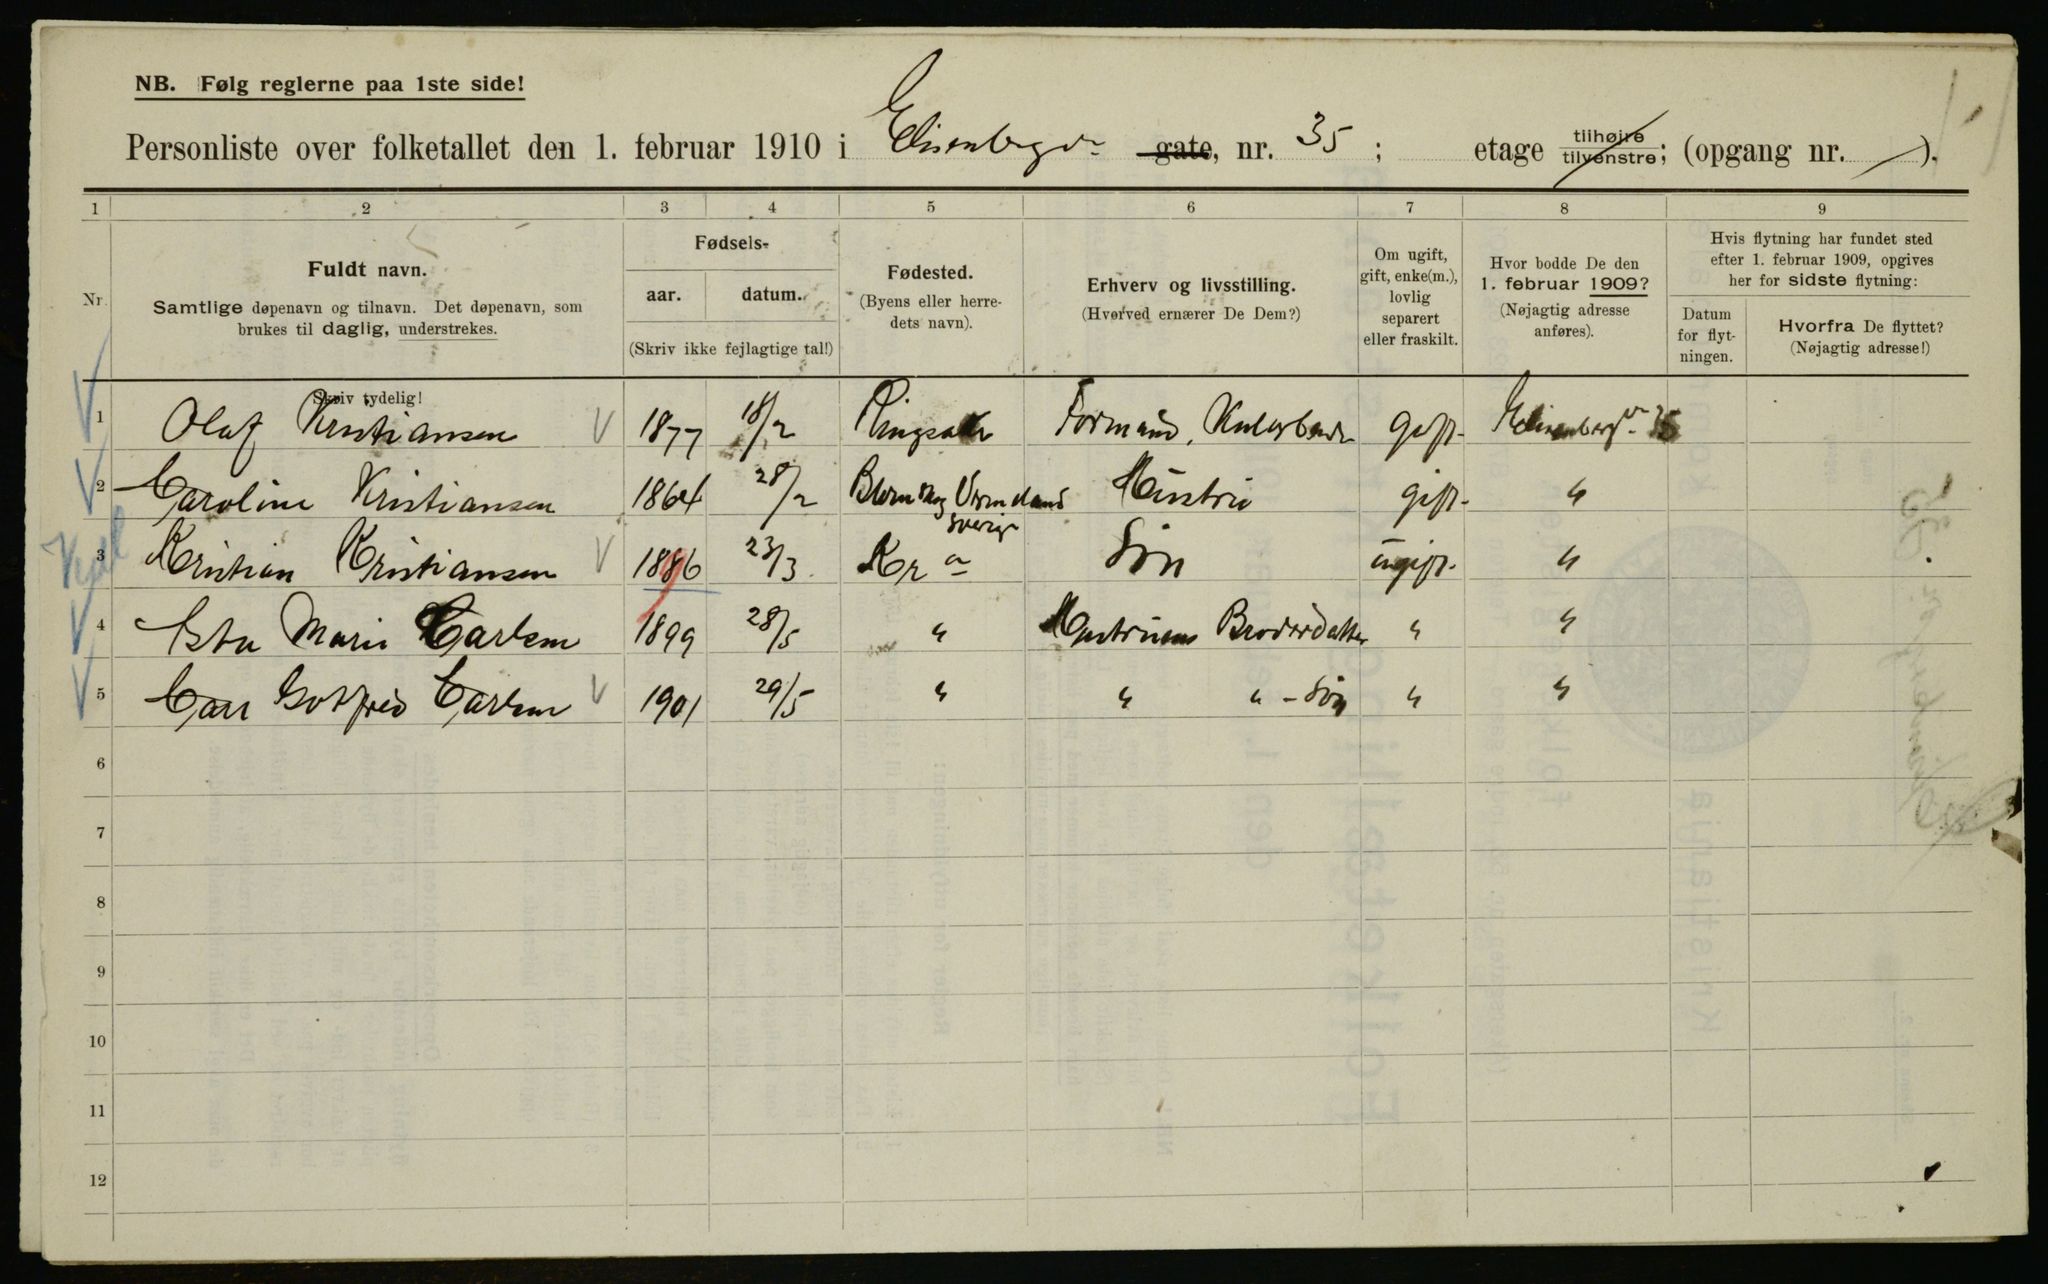 NB. Følg reglerne paa 1ste side!
Personliste over folketallet den 1. februar 1910 i Elisenbergv. gate, nr. 35; etage tilhøire tilvenstre; (opgang nr. ).
1 2 3 4 5 6 7 8 9
Nr.
Fuldt navn.
Samtlige døpenavn og tilnavn. Det døpenavn, som
brukes til daglig, understrekes.
Fødsels-
aar. datum.
(Skriv ikke fejlagtige tal!)
Fødested.
(Byens eller herre-
dets navn).
Erhverv og livsstilling.
(Hvorved ernærer De Dem?)
Om ugift,
gift, enke(m.),
lovlig
separert
eller fraskilt.
Hvor bodde De den
1. februar 1909?
(Nøjagtig adresse
anføres).
Hvis flytning har fundet sted
efter 1. februar 1909, opgives
her for sidste flytning:
Datum
for flyt-
ningen.
Hvorfra De flyttet?
(Nøjagtig adresse!)
Skriv tydelig!
1 Olaf Kristiansen 1877 18/2 Ringsaker Formand, gift Elisenbergv. 35
2 Caroline Kristiansen 1864 28/2 Blomskog Vermland Hustru gift "
Sverige
3 Kristian Kristiansen 1886 23/3 Kr a Søn ugift "
4 Marie Carlsen 1899 28/5 " Hustruens Broderdatter " "
5 Carl Gotfred Carlsen 1901 29/5 " " " - Søn " "
6
7
8
9
10
11
12